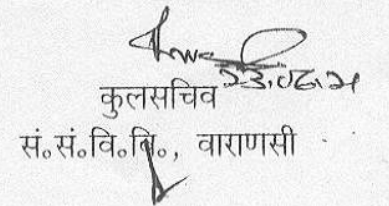 कुलसचिव
सं॰सं॰वि॰वि॰, वाराणसी